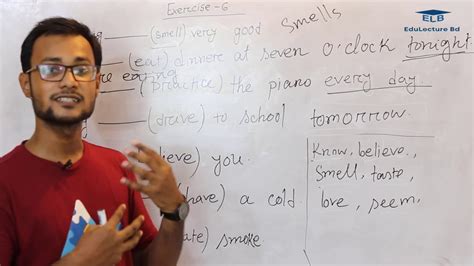 Exercise-6
smells
ELB
EduLecture Bd
(smell) very good
(eat) dinner at seven o'clock tonight
are eating
(practice) the piano every day
(drive) to school tomorrow.
Know, believe,
Smell, taste,
love, seem,
ieve) you.
(have) a cold
ate) smoke